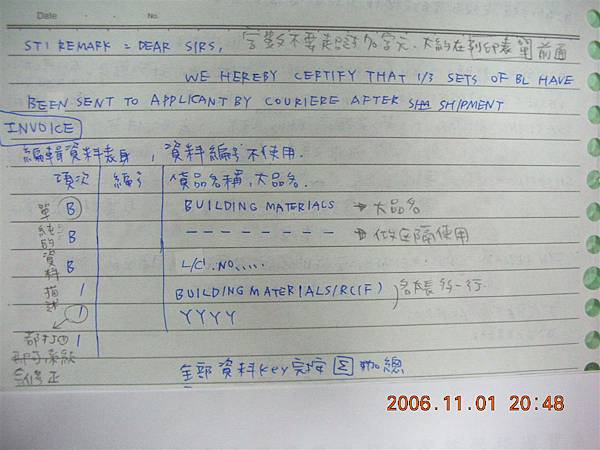 Date . . No.
STI REMARK = DEAR SIRS, 字數不要超過 加字元. 大約在列印表單前面
WE HEREBY CERTIFY THAT 1/3 SETS OF BL HAVE
BEEN SENT TO APPLICANT BY COURIERE AFTER SHIPMENT
INVOICE
編輯資料表身, 資料編号不使用.
項次 編号 貨品名稱,大品名.
B BUILDING MATERIALS → 大品名
B -------- → 做區隔使用
B L/C. NO.....
1 BUILDING MATERIALS/RC(F)
1 YYYY
1
單純的資料描述
都打①
修正
全部資料Key完按 Σ 加總
2006.11.01 20:48